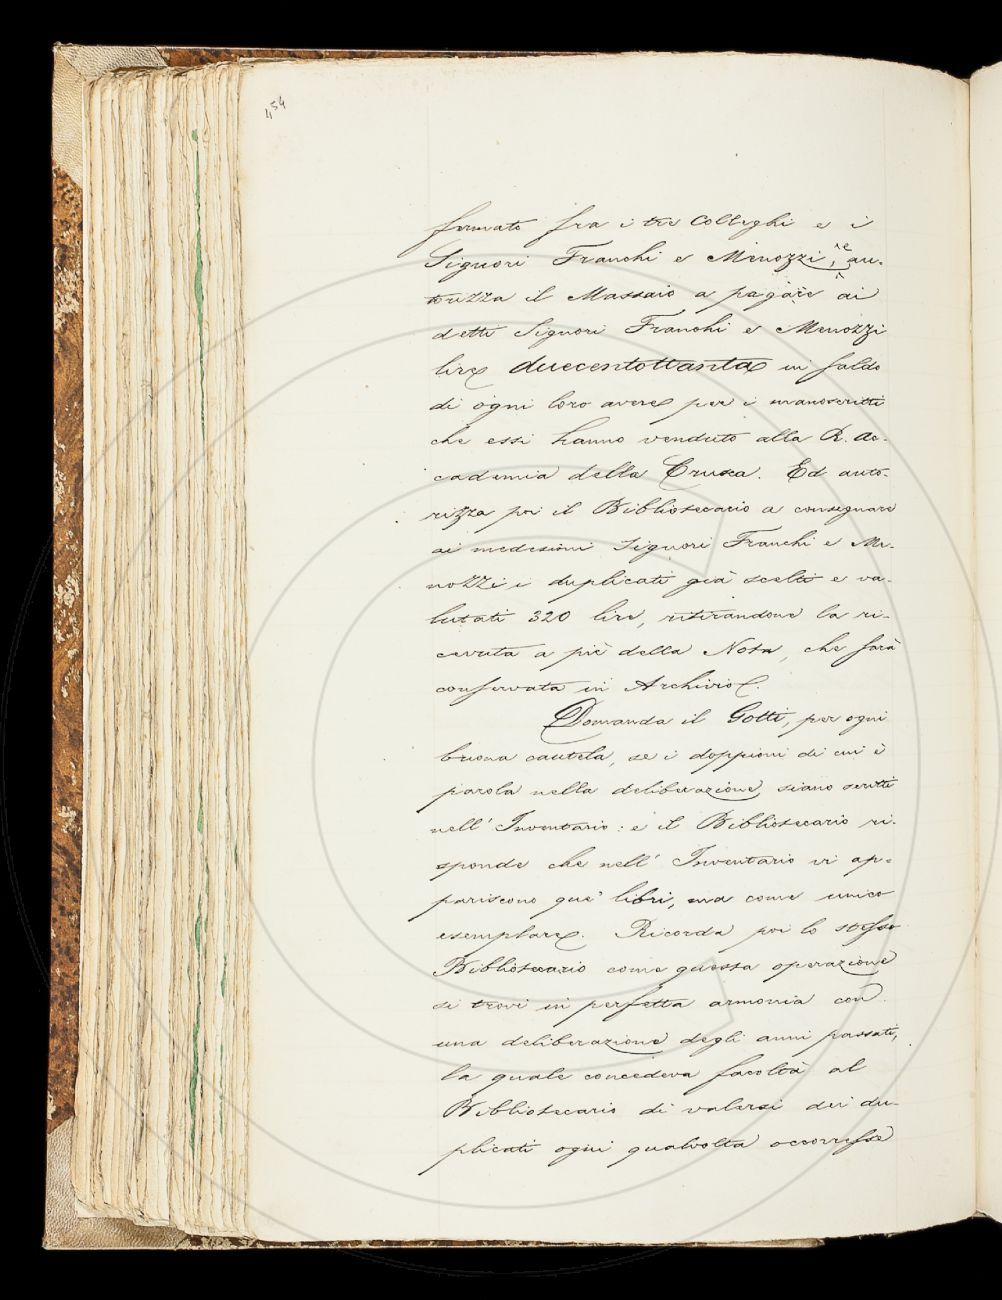 454
fermato fra i tre Colleghi e i
Signori Franchi e Menozzi; e au-
torizza il Massaio a pagare ai
detti Signori Franchi e Menozzi
lire duecentottanta in saldo
di ogni loro avere per i manoscritti
che essi hanno venduto alla R. Ac-
cademia della Crusca. Ed auto-
rizza poi il Bibliotecario a consegnare
ai medesimi Signori Franchi e Me-
nozzi i duplicati già scelti e va-
lutati 320 lire, ritirandone la ri-
cevuta a piè della Nota, che sarà
conservata in Archivio.
Domanda il Gotti, per ogni
buona cautela, se i doppioni di cui è
parola nella deliberazione, siano scritti
nell' Inventario: e il Bibliotecario ri-
sponde che nell' Inventario vi ap-
pariscono que' libri, ma come unico
esemplare. Ricorda poi lo stesso
Bibliotecario come questa operazione
si trovi in perfetta armonia con
una deliberazione degli anni passati,
la quale concedeva facoltà al
Bibliotecario di valersi dei du-
plicati ogni qualvolta occorresse